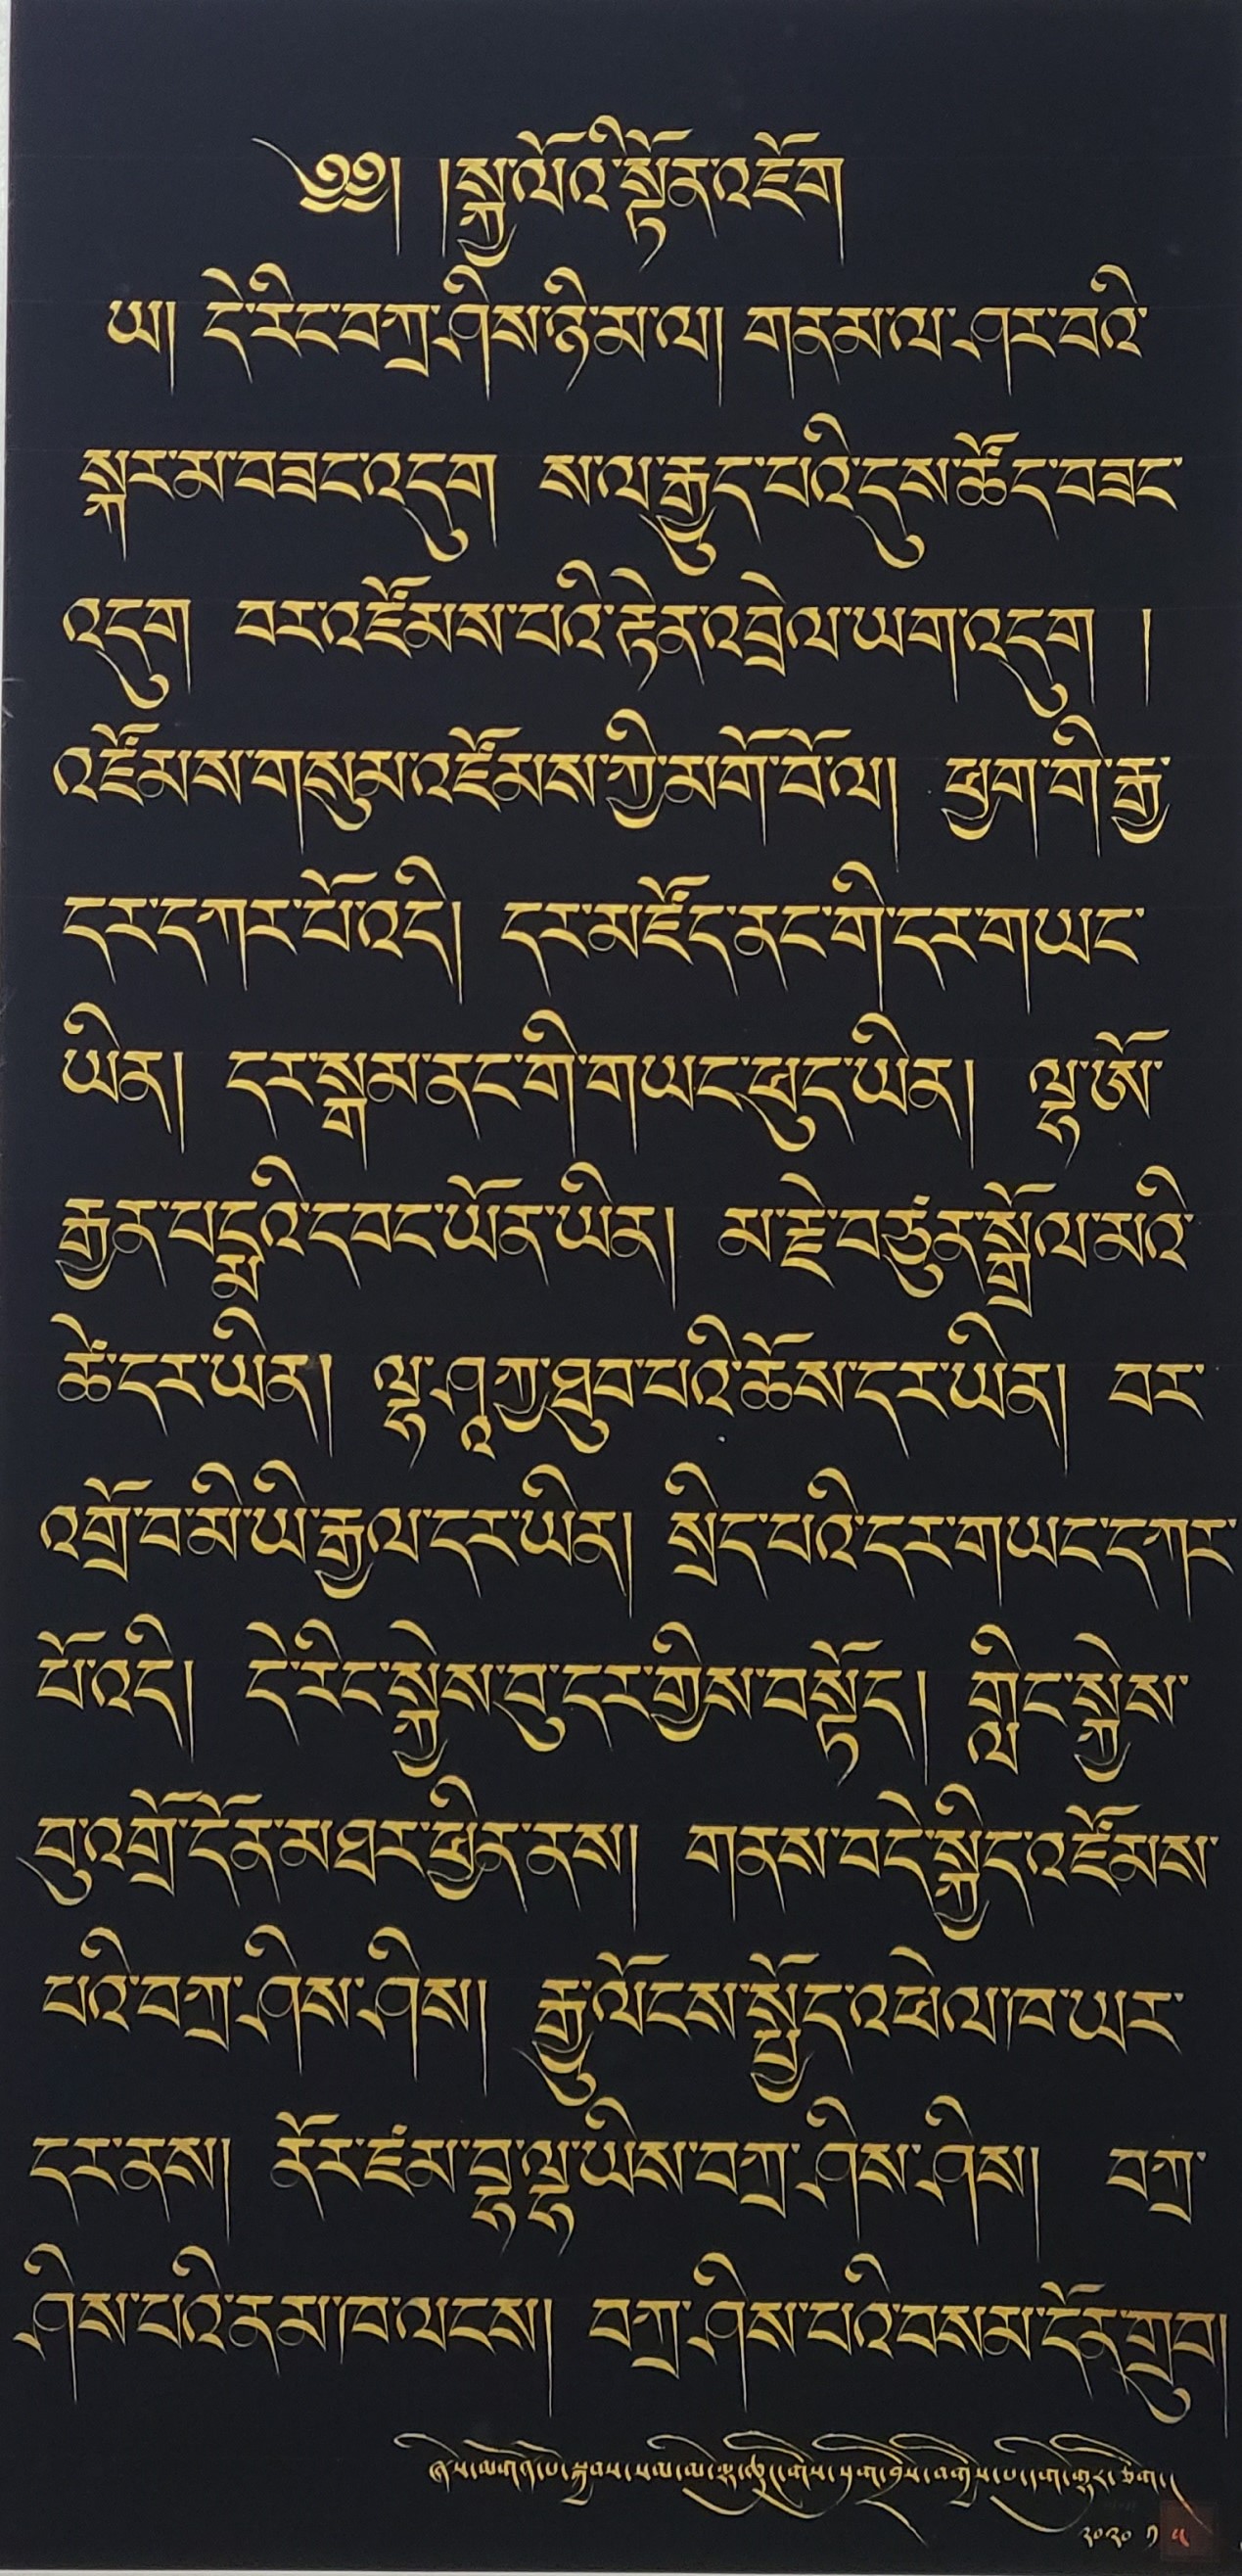 ༄༅། །སྐྱ་ལོའི་སྟོན་འཇོག
ཡ། དེ་རིང་བཀྲ་ཤིས་ཉི་མ་ལ། གནམ་ལ་ཤར་བའི་
སྐར་མ་བཟང་འདུག ས་ལ་རྒྱུད་པའི་དུས་ཚོད་བཟང་
འདུག བར་འཛོམས་པའི་རྟེན་འབྲེལ་ཡག་འདུག །
འཛོམས་གསུམ་འཛོམས་ཀྱི་མགོ་བོ་ལ། ཕྱག་གི་རྒྱ་
དར་དཀར་པོ་འདི། དར་མཛོད་ནང་གི་དར་གཡང་
ཡིན། དར་སྒམ་ནང་གི་གཡང་ཕུད་ཡིན། ལྷ་ཨོ་
རྒྱན་པདྨའི་དབང་ཡོན་ཡིན། མ་རྗེ་བཙུན་སྒྲོལ་མའི་
ཚེ་དར་ཡིན། ལྷ་ཤཱཀྱ་ཐུབ་པའི་ཆོས་དར་ཡིན། བར་
འགྲོ་བ་མི་ཡི་རྒྱལ་དར་ཡིན། སྲིད་པའི་དར་གཡང་དཀར་
པོ་འདི། དེ་རིང་སྐྱེས་བུ་དར་གྱིས་བསྟོད། གླིང་སྐྱེས་
བུ་འགྲོ་དོན་མཐར་ཕྱིན་ནས། གནས་བདེ་སྐྱིད་འཛོམས་
པའི་བཀྲ་ཤིས་ཤིས། རྒྱུ་ལོངས་སྤྱོད་འཕེལ་ཁ་ཡར་
དར་ནས། ནོར་ཛམ་བྷ་ལྷ་ཡིས་བཀྲ་ཤིས་ཤིས། བཀྲ་
ཤིས་པའི་ནམ་ཁ་ལངས། བཀྲ་ཤིས་པའི་བསམ་དོན་གྲུབ།
༢༠༢༠